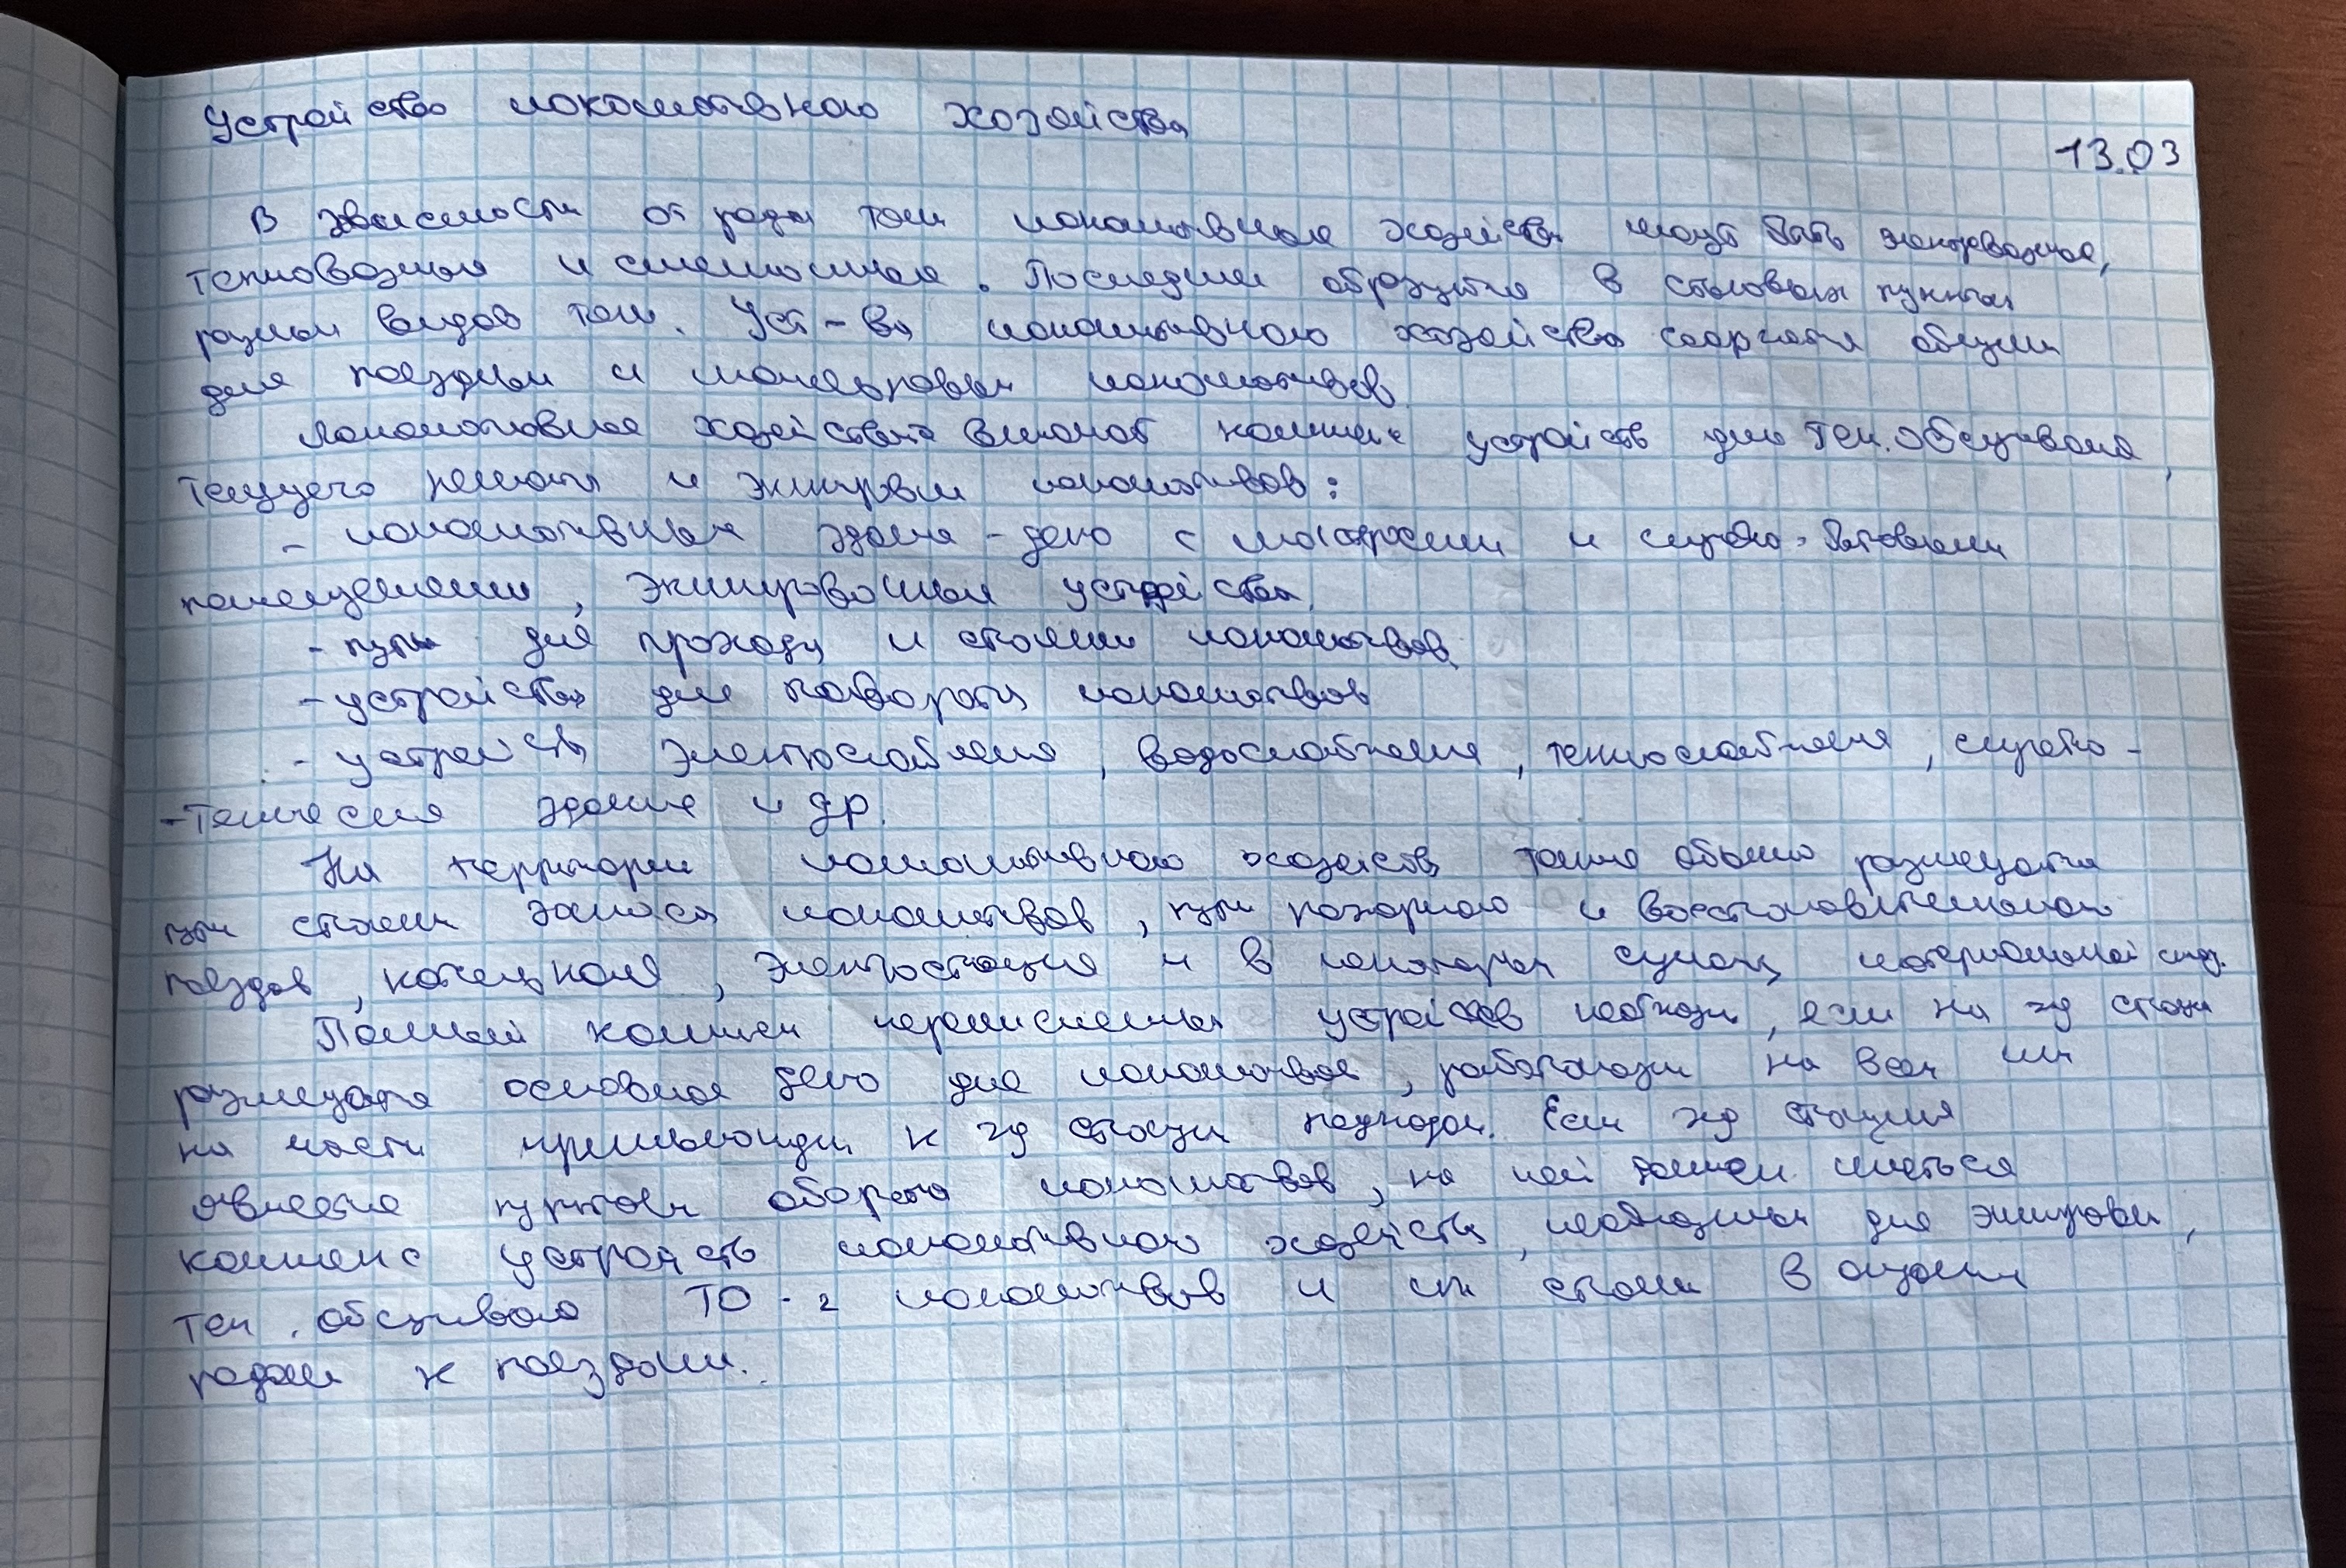 Устройство локомотивного хозяйства
13.03
В зависимости от рода тяги локомотивное хозяйство могут быть электровозное,
тепловозная и смешанная. Последние образуются в стыковых пунктах
разных видов тяги. Уст-ва локомотивного хозяйства сооружаются общими
для поездных и маневровых локомотивов
Локомотивное хозяйство включает комплекс устройств для тех. обслуживания,
текущего ремонта и экипировки локомотивов:
- локомотивные здания - депо с мастерскими и служебно-бытовыми
помещениями, экипировочные устройства,
- пути для прохода и стоянки локомотивов
- устройства для поворота локомотивов
- устройства электроснабжения, водоснабжения, теплоснабжения, служебно-
-технические здания и др.
На территории локомотивного хозяйства также обычно размещаются
пути стоянки запаса локомотивов, пути пожарного и восстановительного
поездов, котельная, электростанция и в некоторых случаях материальный склад.
Полный комплекс перечисленных устройств необходим, если на жд станции
размещается основное депо для локомотивов, работающих на всех или
на части примыкающих к жд станции подходах. Если жд станция
является пунктом оборота локомотивов, на ней должен иметься
комплекс устройств локомотивного хозяйства, необходимых для экипировки,
тех. обслуживания ТО-2 локомотивов и их стоянки в ожидании
подачи к поездам.